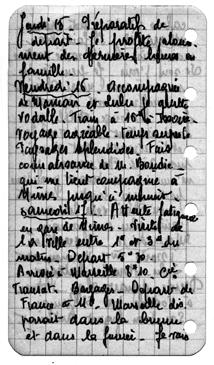 Jeudi 15 - Préparatifs de
départ. Je profite
ment des dernières heures en
famille.
Vendredi 16 Accompagné
de Maman et Lulu je quitte
. Train à 16
voyage agréable. Temps
Paysages splendides. Fais
connaissance de M.
qui me tient compagnie à
Nîmes jusqu'à minuit.
samedi 17. Attente fatigante
en gare de Nîmes. Visite de
la ville entre 1h et 3h du
matin. Départ 5h30
Arrivée à Marseille 8h10. Cie
Transat. Bagages. Départ du
France à 11h. Marseille dis
paraît dans la brume
et dans la fumée. Je vais